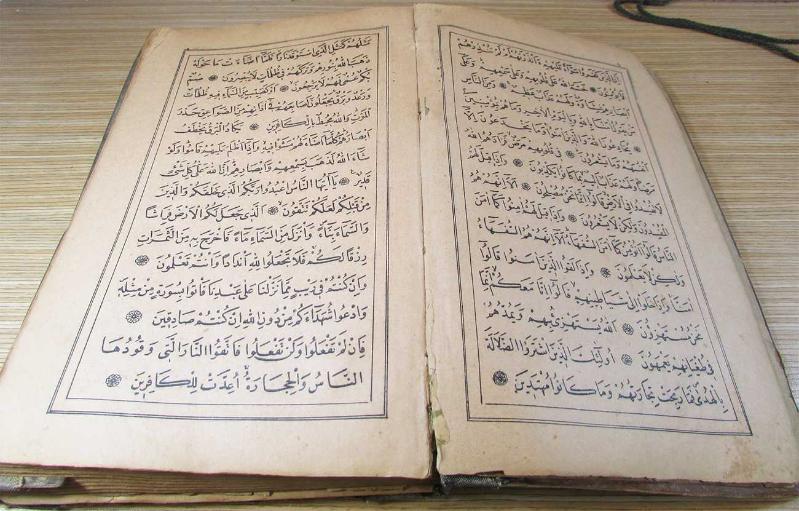 اِنَّ الَّذِينَ كَفَرُوا سَوَاءٌ عَلَيْهِمْ ءَاَنْذَرْتَهُمْ اَمْ لَمْ تُنْذِرْهُمْ
لَا يُؤْمِنُونَ خَتَمَ اللّٰهُ عَلٰى قُلُوبِهِمْ وَعَلٰى سَمْعِهِمْ وَعَلٰى
اَبْصَارِهِمْ غِشَاوَةٌ وَلَهُمْ عَذَابٌ عَظِيمٌ وَمِنَ النَّاسِ
مَنْ يَقُولُ اٰمَنَّا بِاللّٰهِ وَبِالْيَوْمِ الْاٰخِرِ وَمَا هُمْ بِمُؤْمِنِينَ
يُخَادِعُونَ اللّٰهَ وَالَّذِينَ اٰمَنُوا وَمَا يَخْدَعُونَ اِلَّا
اَنْفُسَهُمْ وَمَا يَشْعُرُونَ فِي قُلُوبِهِمْ مَرَضٌ فَزَادَهُمُ اللّٰهُ
مَرَضًا وَلَهُمْ عَذَابٌ اَلِيمٌ بِمَا كَانُوا يَكْذِبُونَ وَاِذَا قِيلَ لَهُمْ
لَا تُفْسِدُوا فِي الْاَرْضِ قَالُوا اِنَّمَا نَحْنُ مُصْلِحُونَ اَلَا اِنَّهُمْ هُمُ
الْمُفْسِدُونَ وَلٰكِنْ لَا يَشْعُرُونَ وَاِذَا قِيلَ لَهُمْ اٰمِنُوا كَمَا اٰمَنَ
النَّاسُ قَالُوا اَنُؤْمِنُ كَمَا اٰمَنَ السُّفَهَاءُ اَلَا اِنَّهُمْ هُمُ السُّفَهَاءُ
وَلٰكِنْ لَا يَعْلَمُونَ وَاِذَا لَقُوا الَّذِينَ اٰمَنُوا قَالُوا
اٰمَنَّا وَاِذَا خَلَوْا اِلٰى شَيَاطِينِهِمْ قَالُوا اِنَّا مَعَكُمْ اِنَّمَا
نَحْنُ مُسْتَهْزِؤُنَ اَللّٰهُ يَسْتَهْزِئُ بِهِمْ وَيَمُدُّهُمْ
فِي طُغْيَانِهِمْ يَعْمَهُونَ اُولٰئِكَ الَّذِينَ اشْتَرَوُا الضَّلَالَةَ
بِالْهُدٰى فَمَا رَبِحَتْ تِجَارَتُهُمْ وَمَا كَانُوا مُهْتَدِينَ
مَثَلُهُمْ كَمَثَلِ الَّذِي اسْتَوْقَدَ نَارًا فَلَمَّا اَضَاءَتْ مَا حَوْلَهُ
ذَهَبَ اللّٰهُ بِنُورِهِمْ وَتَرَكَهُمْ فِي ظُلُمَاتٍ لَا يُبْصِرُونَ صُمٌّ
بُكْمٌ عُمْيٌ فَهُمْ لَا يَرْجِعُونَ اَوْ كَصَيِّبٍ مِنَ السَّمَاءِ فِيهِ ظُلُمَاتٌ
وَرَعْدٌ وَبَرْقٌ يَجْعَلُونَ اَصَابِعَهُمْ فِي اٰذَانِهِمْ مِنَ الصَّوَاعِقِ حَذَرَ
الْمَوْتِ وَاللّٰهُ مُحِيطٌ بِالْكَافِرِينَ يَكَادُ الْبَرْقُ يَخْطَفُ
اَبْصَارَهُمْ كُلَّمَا اَضَاءَ لَهُمْ مَشَوْا فِيهِ وَاِذَا اَظْلَمَ عَلَيْهِمْ قَامُوا وَلَوْ
شَاءَ اللّٰهُ لَذَهَبَ بِسَمْعِهِمْ وَاَبْصَارِهِمْ اِنَّ اللّٰهَ عَلٰى كُلِّ شَيْءٍ
قَدِيرٌ يَا اَيُّهَا النَّاسُ اعْبُدُوا رَبَّكُمُ الَّذِي خَلَقَكُمْ وَالَّذِينَ
مِنْ قَبْلِكُمْ لَعَلَّكُمْ تَتَّقُونَ اَلَّذِي جَعَلَ لَكُمُ الْاَرْضَ فِرَاشًا
وَالسَّمَاءَ بِنَاءً وَاَنْزَلَ مِنَ السَّمَاءِ مَاءً فَاَخْرَجَ بِهِ مِنَ الثَّمَرَاتِ
رِزْقًا لَكُمْ فَلَا تَجْعَلُوا لِلّٰهِ اَنْدَادًا وَاَنْتُمْ تَعْلَمُونَ
وَاِنْ كُنْتُمْ فِي رَيْبٍ مِمَّا نَزَّلْنَا عَلٰى عَبْدِنَا فَاْتُوا بِسُورَةٍ مِنْ مِثْلِهِ
وَادْعُوا شُهَدَاءَكُمْ مِنْ دُونِ اللّٰهِ اِنْ كُنْتُمْ صَادِقِينَ
فَاِنْ لَمْ تَفْعَلُوا وَلَنْ تَفْعَلُوا فَاتَّقُوا النَّارَ الَّتِي وَقُودُهَا
النَّاسُ وَالْحِجَارَةُ اُعِدَّتْ لِلْكَافِرِينَ